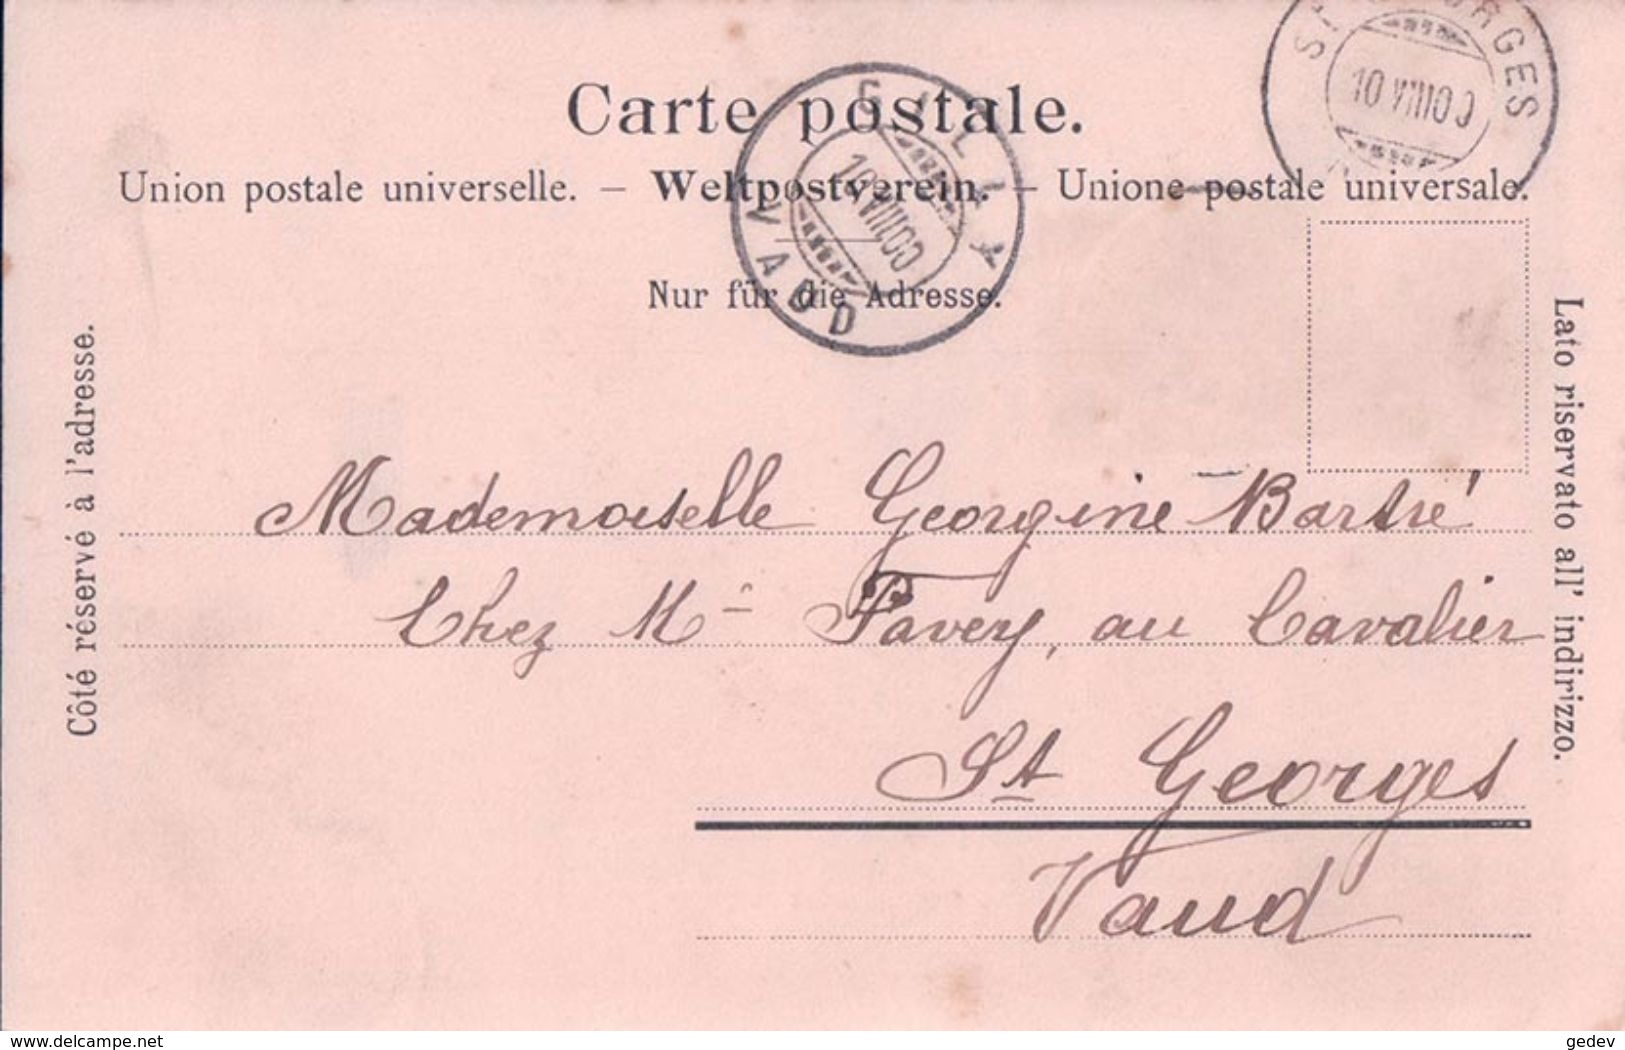 Carte postale.
Union postale universelle. – Weltpostverein. – Unione postale universale.
Nur für die Adresse.
Côté réservé à l'adresse.
Lato riservato all' indirizzo.
GILLY
10 VIII 00
VAUD
10 VIII 00
Mademoiselle Georgine
Chez M Pavery, au Cavalier
St Georges
Vaud
www.delcampe.net
gedev